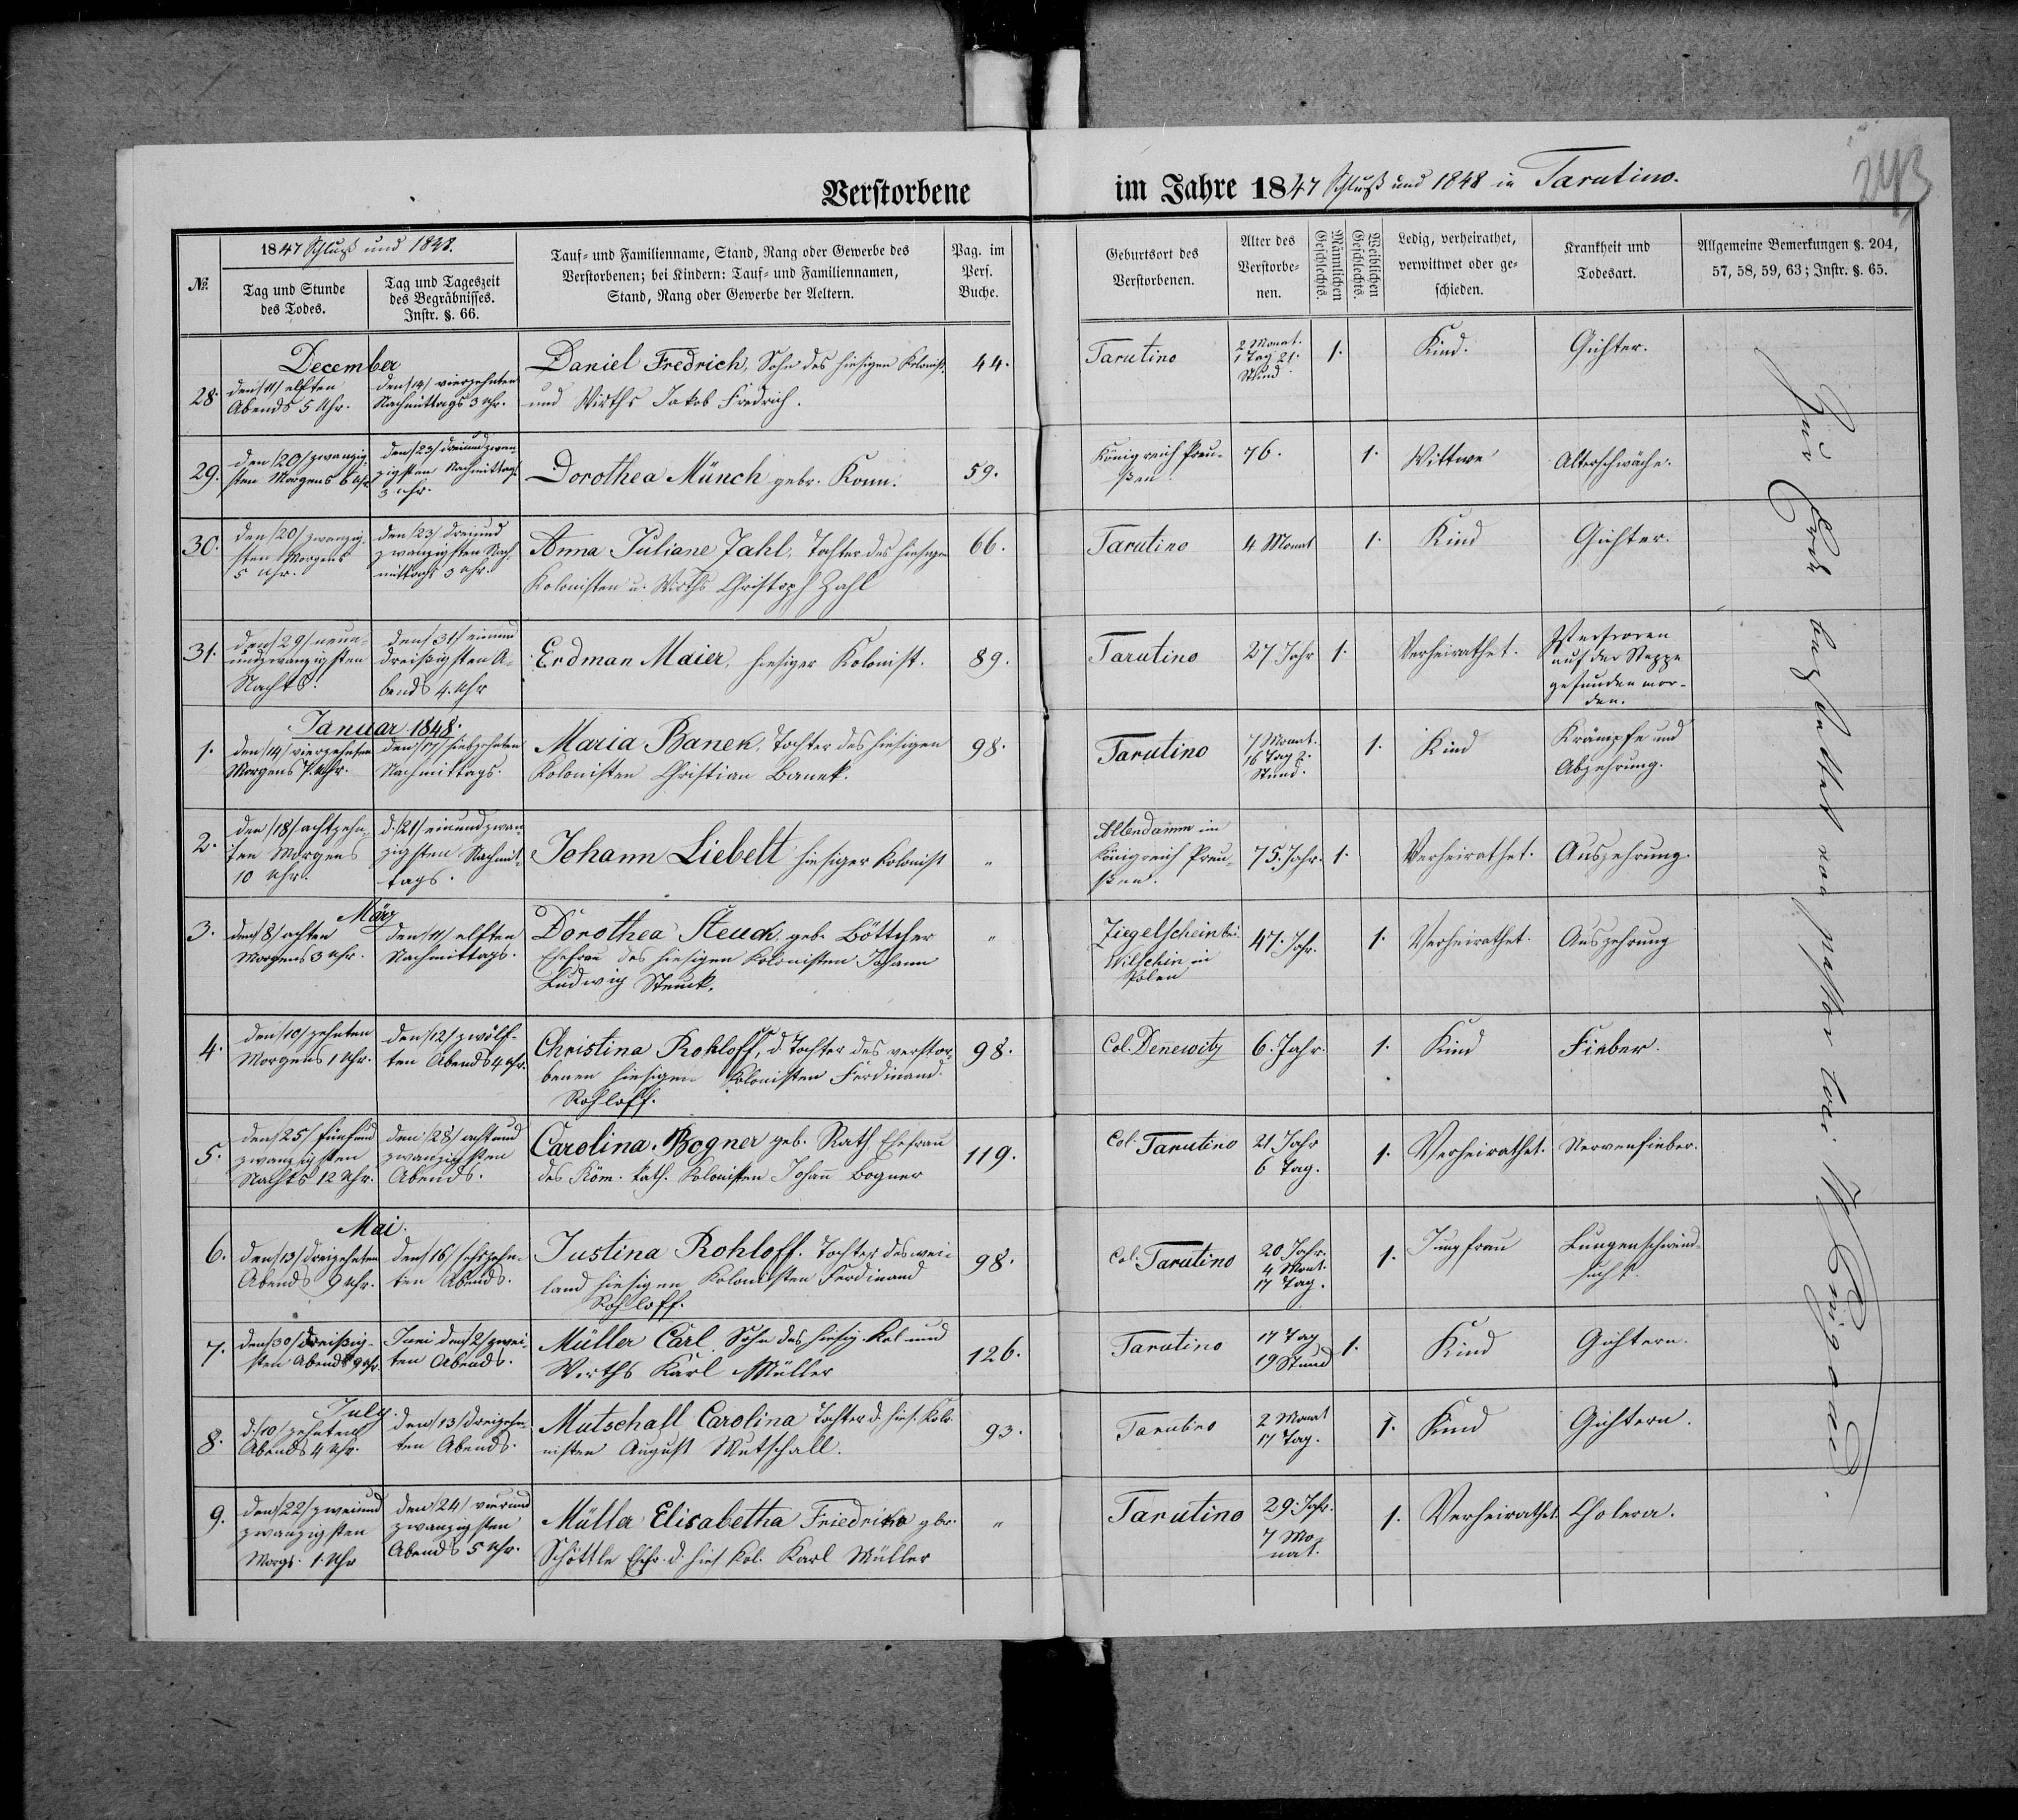 Verstorbene
im Jahre 1847 Schluß und 1848 in Tarutino.
243
№.
1847 Schluß und 1848.
Tag und Stunde
des Todes.
Tag und Tageszeit
des Begräbnisses.
Instr. §. 66.
Tauf- und Familienname, Stand, Rang oder Gewerbe des
Verstorbenen; bei Kindern: Tauf- und Familiennamen,
Stand, Rang oder Gewerbe der Aeltern.
Pag. im
Pers.
Buche.
Geburtsort des
Verstorbenen.
Alter des
Verstorbe-
nen.
Männlichen
Geschlechts.
Weiblichen
Geschlechts.
Ledig, verheirathet,
verwittwet oder ge-
schieden.
Krankheit und
Todesart.
Allgemeine Bemerkungen §. 204,
57, 58, 59, 63; Instr. §. 65.
December
28.
den /11/ elften
Abends 5 Uhr.
den /14/ vierzehnten
Nachmittags 3 Uhr.
Daniel Fredrich, Sohn des hiesigen Kolonist.
und Wirths Jakob Fredrich.
44.
Tarutino
2 Monat.
1 Tag 21.
Stund.
1.
Kind.
Gichter.
29.
den /20/ zwanzig-
sten Morgens 6 Uhr
den /23/ dreiundzwan-
zigsten Nachmittags
3 Uhr.
Dorothea Münch gebr. Konn.
59.
Königreich Preu-
ßen
76.
1.
Wittwe
Alterschwäche.
30.
den /20/ zwanzig-
sten Morgens
5 Uhr.
den /23/ dreiund
zwanzigsten Nach-
mittags 3 Uhr.
Anna Juliane Zahl, Tochter des hiesigen
Kolonisten u. Wirths Christoph Zahl
66.
Tarutino
4 Monat
1.
Kind
Gichter.
31.
den /29/ neun-
undzwanzigsten
Nachts.
den /31/ einund
dreißigsten A-
bends 4. Uhr
Erdman Maier, hiesiger Kolonist.
89.
Tarutino
27 Jahr
1.
Verheirathet.
Ist erfroren
auf der Steppe
gefunden wor-
den.
Januar 1848.
1.
den /14/ vierzehnten
Morgens 7. Uhr.
den /17/ siebzehnten
Nachmittags.
Maria Banek, Tochter des hiesigen
Kolonisten Christian Banek.
98.
Tarutino
7 Monat.
16 Tag 2.
Stund.
1.
Kind
Krämpfe und
Abzehrung.
2.
den /18/ achtzehn-
ten Morgens
10 Uhr.
d. /21/ einundzwan-
zigsten Nachmit-
tags.
Johann Liebelt hiesiger Kolonist
"
Altendamm im
Königreich Preu-
ßen.
75. Jahr.
1.
Verheirathet.
Auszehrung.
März
3.
den /8/ achten
Morgens 3 Uhr.
den /11/ elften
Nachmittags.
Dorothea Steuck, geb. Böttcher
Ehefrau des hiesigen Kolonisten Johann
Ludwig Steuck.
"
Ziegelschein bei
Wilschin in
Polen
47. Jahr.
1.
Verheirathet.
Auszehrung
4.
den /10/ zehnten
Morgens 1 Uhr.
den /12/ zwölf-
ten Abends 4 Uhr.
Christina Rohloff, d. Tochter des verstor-
benen hiesigen Kolonisten Ferdinand
Rohloff.
98.
Col. Denewitz
6. Jahr.
1.
Kind
Fieber.
5.
den /25/ fünfund
zwanzigsten
Nachts 12 Uhr.
den /28/ achtund
zwanzigsten
Abends.
Carolina Bogner geb. Rath Ehefrau
des Röm. kath. Kolonisten Johann Bogner
119.
Col. Tarutino
21. Jahr
6 Tag.
1.
Verheirathet.
Nervenfieber.
Mai.
6.
den /13/ dreizehnten
Abends 9 Uhr.
den /16/ sechszehn-
ten Abends.
Justina Rohloff. Tochter des wei-
land hiesigen Kolonisten Ferdinand
Rohloff.
98.
Col. Tarutino
20 Jahr.
4 Monat.
17 Tag.
1.
Jungfrau
Lungenschwind-
sucht.
7.
den /30/ dreißig-
sten Abends 9 Uhr
Juni den /2/ zwei-
ten Abends.
Müller Carl Sohn des hiesig. Kol. und
Wirths Karl Müller
126.
Tarutino
17 Tag
19 Stund
1.
Kind
Gichtern.
July.
8.
d. /10/ zehnten
Abends 4 Uhr.
den /13/ dreizehn-
ten Abends.
Mutschall Carolina Tochter d. hies. Kolo-
nisten August Mutschall.
93.
Tarutino
2 Monat
17 Tag.
1.
Kind
Gichtern.
9.
den /22/ zweiund
zwanzigsten
Morgs. 1 Uhr
den /24/ vierund
zwanzigsten
Abends 5 Uhr.
Müller Elisabetha Friedrika gbr.
Schöttle Ehfr. d. hies. Kol. Karl Müller
"
Tarutino
29. Jahr.
7 Mo-
nat.
1.
Verheirathet
Cholera.
Zur Erde bestattet von pastor loci